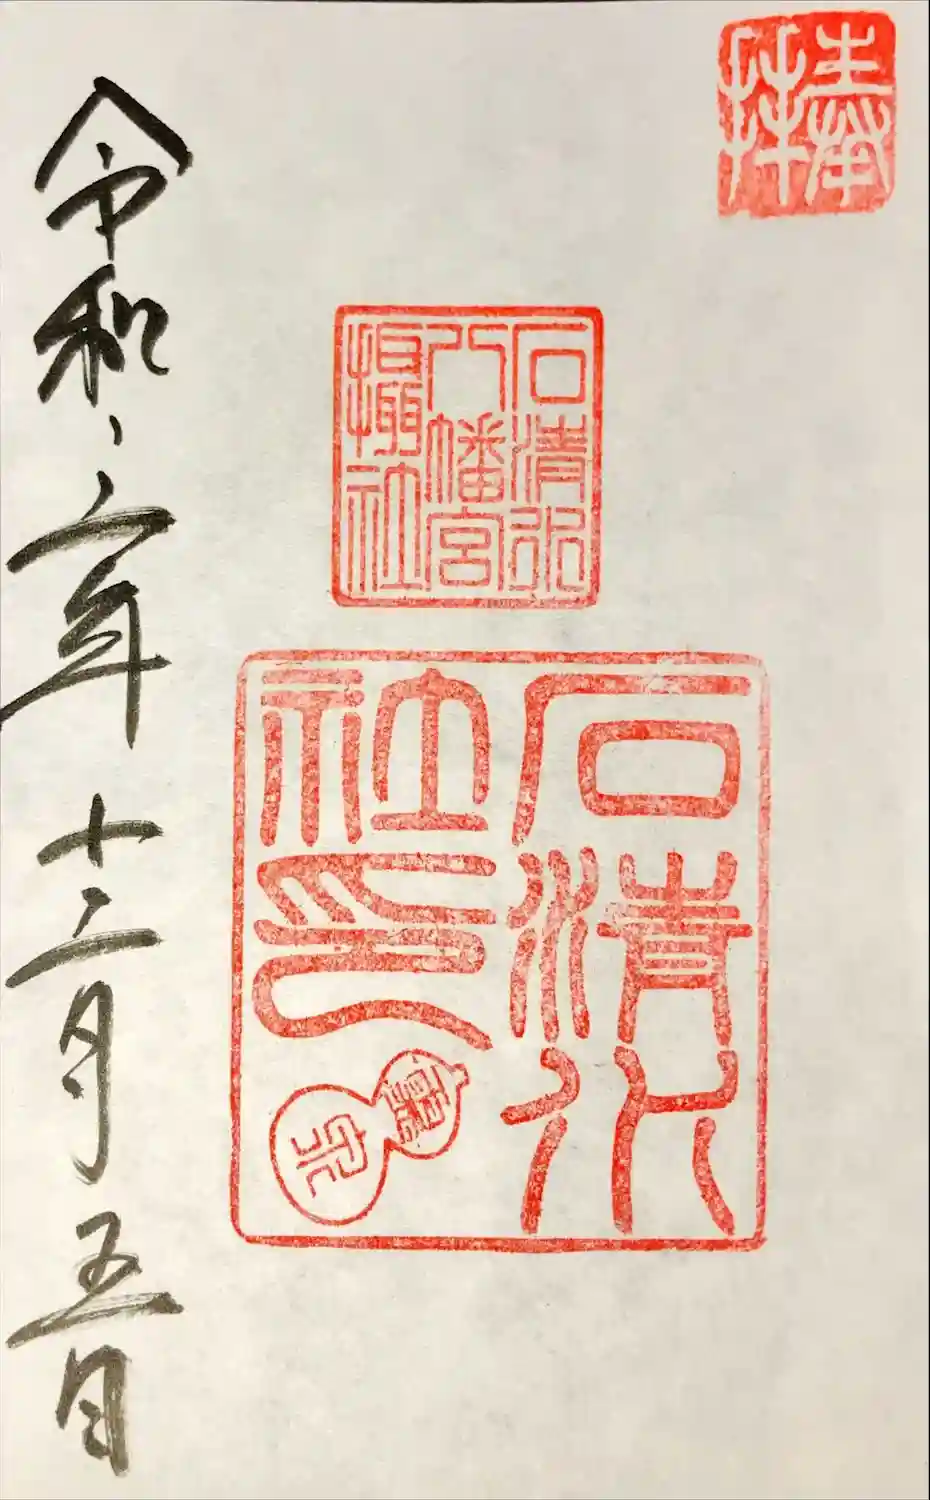 奉拝
石清水
八幡宮
攝社
石清水
社印
令和三年十二月五日